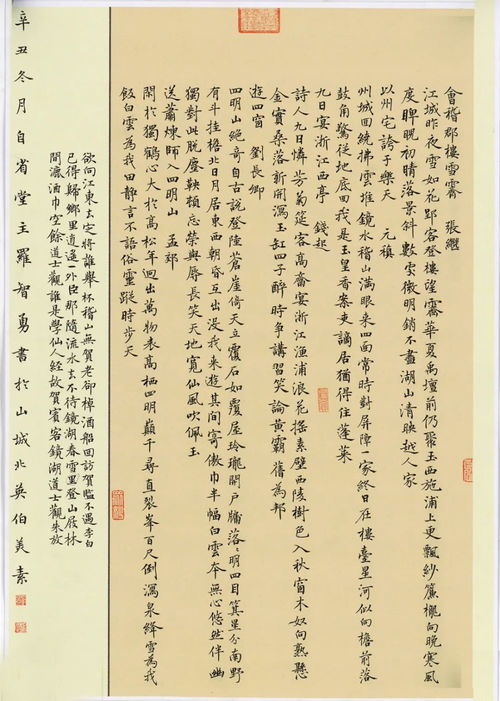 會稽郡樓雪霽 張繼
江城昨夜雪如花郢客登樓望霽華夏禹壇前仍聚玉西施浦上更飄紗簾櫳向晚寒風
度睥睨初晴落景斜數處微明銷不盡湖山清映越人家
以州宅誇于樂天 元稹
州城回繞拂雲堆鏡水稽山滿眼來四面常時對屏障一家終日在樓臺星河似向檐前落
鼓角驚從地底回我是玉皇香案吏謫居猶得住蓬萊
九日宴浙江西亭 錢起
詩人九日憐芳菊筵客高齋宴浙江漁浦浪花搖素壁西陵樹色入秋窗木奴向熟懸
金實桑落新開瀉玉缸四子醉時爭講習笑論黃霸舊為邦
遊四窗 劉長卿
四明山絕奇自古說登陸蒼崖倚天立覆石如覆屋玲瓏開戶牖落落明四目箕星分南野
有斗挂檐北日月居東西朝昏互出沒我來遊其間寄傲巾半幅白雲本無心悠然伴幽
獨對此脫塵鞅頓忘榮與辱長笑天地寬仙風吹佩玉
送蕭煉師入四明山 孟郊
閑於獨鶴心大於高松年迴出萬物表高栖四明巔千尋直裂峯百尺倒瀉泉絳雪為我
飯白雲為我田靜言不語俗靈蹤時步天
欲向江東去定將誰舉杯稽山無賀老卻棹酒船回訪賀監不遇李白
己得歸鄉里逍遙一外臣那隨流水去不待鏡湖春雪里登山屐林
間漉酒巾空餘道士觀誰是學仙人經故賀賓客鏡湖道士觀朱放
辛丑冬月自省堂主羅智勇書於山城北英伯美素